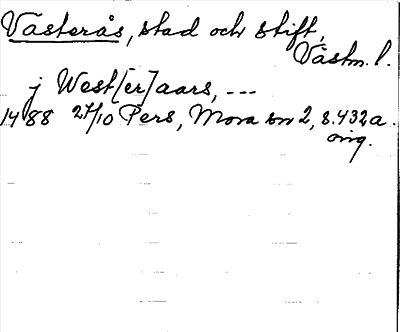 Västerås, stad och stift,
Västm. l.
j West[er]aars, ---
1488 27/10 Pers, Mora sn 2, s. 432 a.
orig.